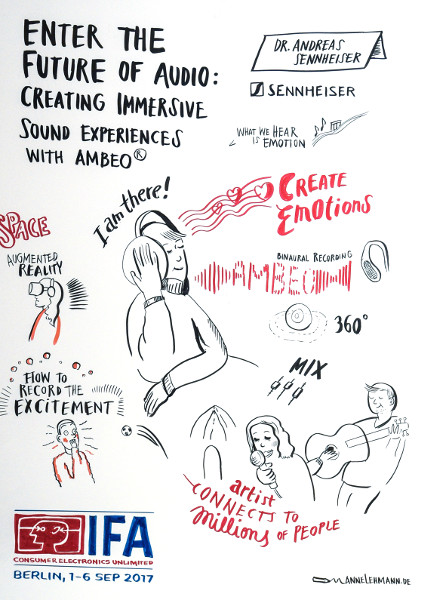 ENTER THE
FUTURE OF AUDIO:
CREATING IMMERSIVE
SOUND EXPERIENCES
WITH AMBEO®
DR. ANDREAS
SENNHEISER
SENNHEISER
WHAT WE HEAR
IS EMOTION
I am there!
CREATE
EMOTIONS
SPACE
AUGMENTED
REALITY
BINAURAL RECORDING
AMBEO
360°
MIX
HOW TO
RECORD THE
EXCITEMENT
artist
CONNECTS TO
millions OF PEOPLE
IFA
CONSUMER ELECTRONICS UNLIMITED
BERLIN, 1-6 SEP 2017
ANNELEHMANN.DE